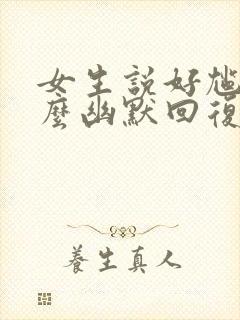 女生説好尷
麼幽默回復
養生真人